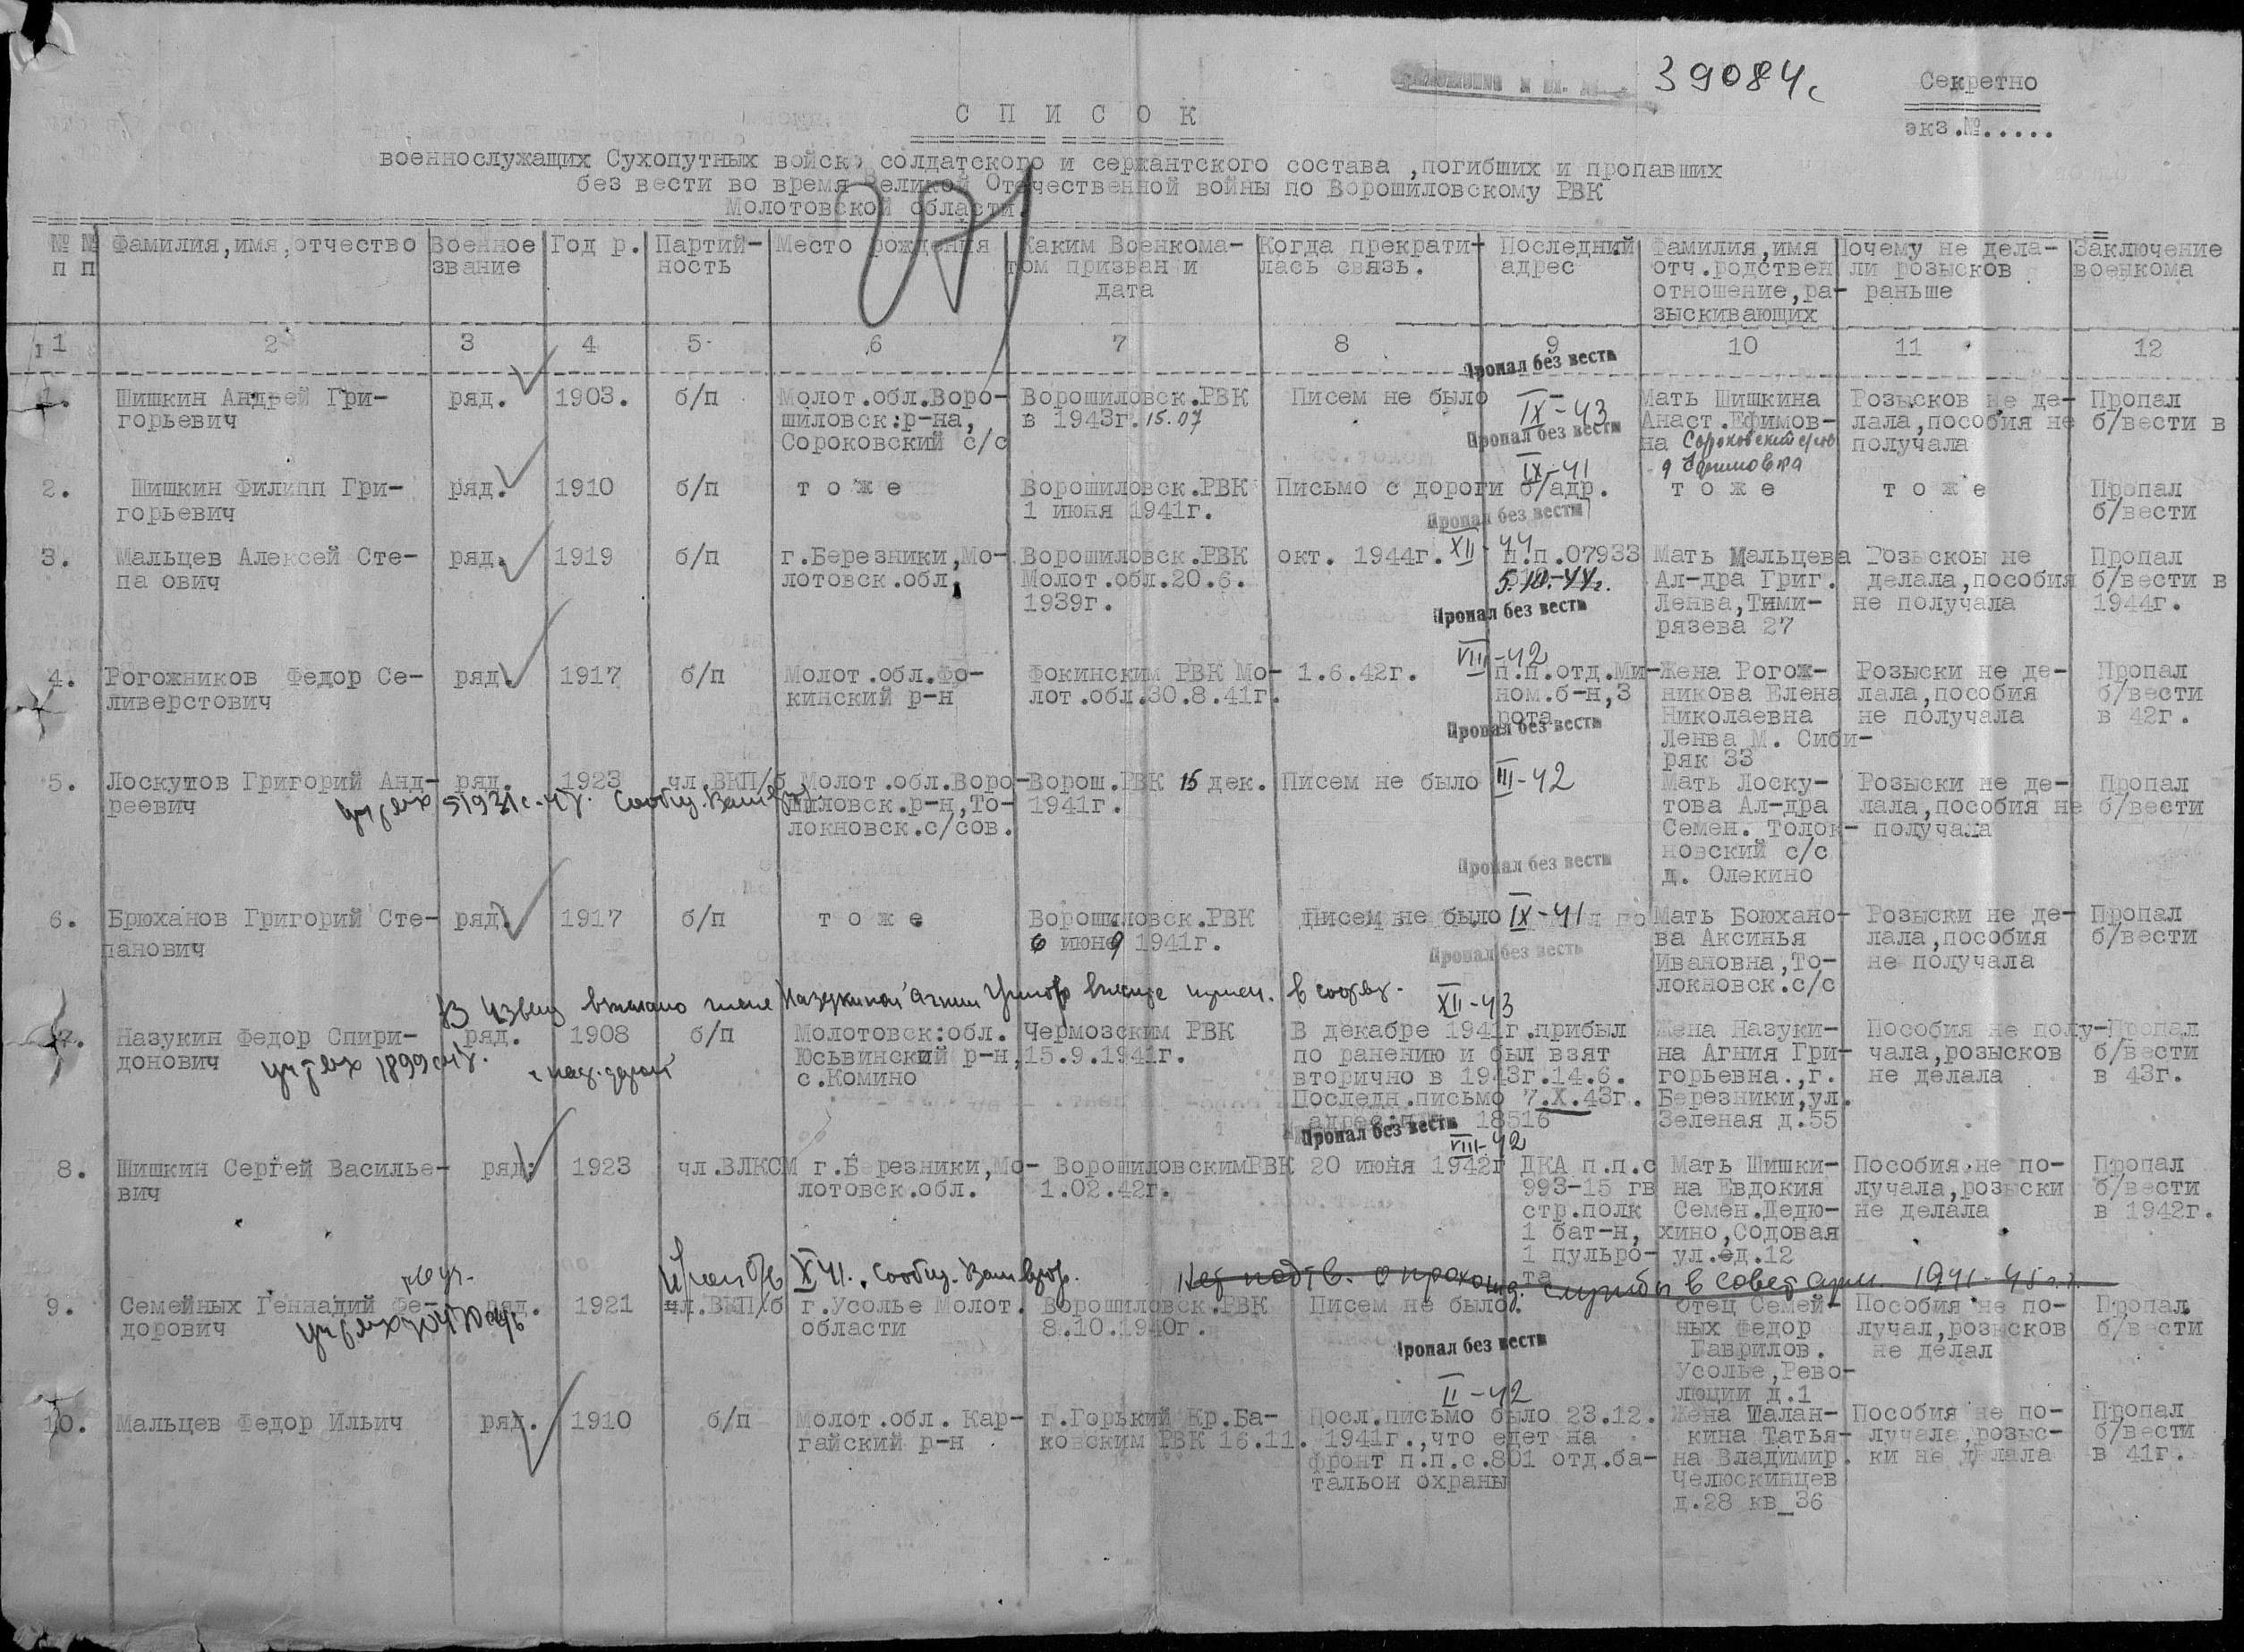 39084с
Секретно
экз.№.....
С П И С О К
военнослужащих Сухопутных войск, солдатского и сержантского состава ,погибших и пропавших
без вести во время Великой Отечественной войны по Ворошиловскому РВК
Молотовской области.
№ № п п | Фамилия,имя,отчество | Военное звание | Год р. | Партий- ность | Место рождения | Каким Военкома- том призван и дата | Когда прекрати- лась связь. | Последний адрес | Фамилия,имя отч.родствен отношение,ра- зыскивающих | Почему не дела- ли розысков раньше | Заключение военкома
1 2 3 4 5 6 7 8 9 10 11 12
Пропал без вести
IX-43
1. Шишкин Андрей Гри- горьевич | ряд. | 1903. | б/п | Молот.обл.Воро- шиловск:р-на, Сороковский с/с | Ворошиловск.РВК в 1943г. 15.07 | Писем не было | Мать Шишкина Анаст.Ефимов- на Сороковский с/со д Ефимовка | Розысков не де- лала,пособия не получала | Пропал б/вести в
Пропал без вести
IX-41
2. Шишкин Филипп Гри- горьевич | ряд. | 1910 | б/п | т о ж е | Ворошиловск.РВК 1 июня 1941г. | Письмо с дороги б/адр. | т о ж е | т о ж е | Пропал б/вести
Пропал без вести
XII-44
3. Мальцев Алексей Сте- па ович | ряд. | 1919 | б/п | г.Березники,Мо- лотовск.обл. | Ворошиловск.РВК Молот.обл.20.6. 1939г. | окт. 1944г. | п.п.07933 5.10.-44г. | Мать Мальцева Ал-дра Григ. Ленва,Тими- рязева 27 | Розыскоы не делала,пособия не получала | Пропал б/вести в 1944г.
Пропал без вести
VIII-42
4. Рогожников Федор Се- ливерстович | ряд. | 1917 | б/п | Молот.обл.Фо- кинский р-н | Фокинским РВК Мо- лот.обл.30.8.41г. | 1.6.42г. | п.п.отд.Ми- ном.б-н,3 рота | Жена Рогож- никова Елена Николаевна Ленва М. Сиби- ряк 33 | Розыски не де- лала,пособия не получала | Пропал б/вести в 42г.
Пропал без вести
III-42
5. Лоскутов Григорий Анд- реевич | ряд. | 1923 | чл.ВКП/б | Молот.обл.Воро- шиловск.р-н,То- локновск.с/сов. | Ворош.РВК 15 дек. 1941г. | Писем не было | Мать Лоску- това Ал-дра Семен. Толок- новский с/с д. Олекино | Розыски не де- лала,пособия не получала | Пропал б/вести
51931с-47.
Пропал без вести
IX-41
6. Брюханов Григорий Сте- панович | ряд. | 1917 | б/п | т о ж е | Ворошиловск.РВК 6 июня 1941г. | Писем не было | Мать Боюхано- ва Аксинья Ивановна,То- локновск.с/с | Розыски не де- лала,пособия не получала | Пропал б/вести
Пропал без вести
XII-43
7. Назукин Федор Спири- донович | ряд. | 1908 | б/п | Молотовск:обл. Юсьвинский р-н, с.Комино | Чермозским РВК 15.9.1941г. | В декабре 1941г.прибыл по ранению и был взят вторично в 1943г.14.6. Последн.письмо 7.X.43г. адрес:п.п. 18516 | Жена Назуки- на Агния Гри- горьевна.,г. Березники,ул. Зеленая д.55 | Пособия не полу- чала,розысков не делала | Пропал б/вести в 43г.
Пропал без вести
VIII-42
8. Шишкин Сергей Василье- вич | ряд. | 1923 | чл.ВЛКСМ | г.Березники,Мо- лотовск.обл. | ВорошиловскимРВК 1.02.42г. | 20 июня 1942г | ДКА п.п.с 993-15 гв стр.полк 1 бат-н, 1 пульро- та | Мать Шишки- на Евдокия Семен.Дедю- хино,Содовая ул.д.12 | Пособия не по- лучала,розыски не делала | Пропал б/вести в 1942г.
Проп б/в X 41. Сообщ.
Нет подтв. о прохожд. службы в Совет арм. 1941-45г.г.
9. Семейных Геннадий Фе- дорович | ряд. | 1921 | чл.ВКП/б | г.Усолье Молот. области | Ворошиловск.РВК 8.10.1940г. | Писем не было. | Отец Семей- ных Федор Гаврилов. Усолье,Рево- люции д.1 | Пособия не по- лучал,розысков не делал | Пропал б/вести
Пропал без вести
II-42
10. Мальцев Федор Ильич | ряд. | 1910 | б/п | Молот.обл. Кар- гайский р-н | г.Горький Кр.Ба- ковским РВК 16.11. | Посл.письмо было 23.12. 1941г.,что едет на фронт п.п.с.801 отд.ба- тальон охраны | Жена Шалан- кина Татья- на Владимир. Челюскинцев д.28 кв_36 | Пособия не по- лучала,розыс- ки не делала | Пропал б/вести в 41г.